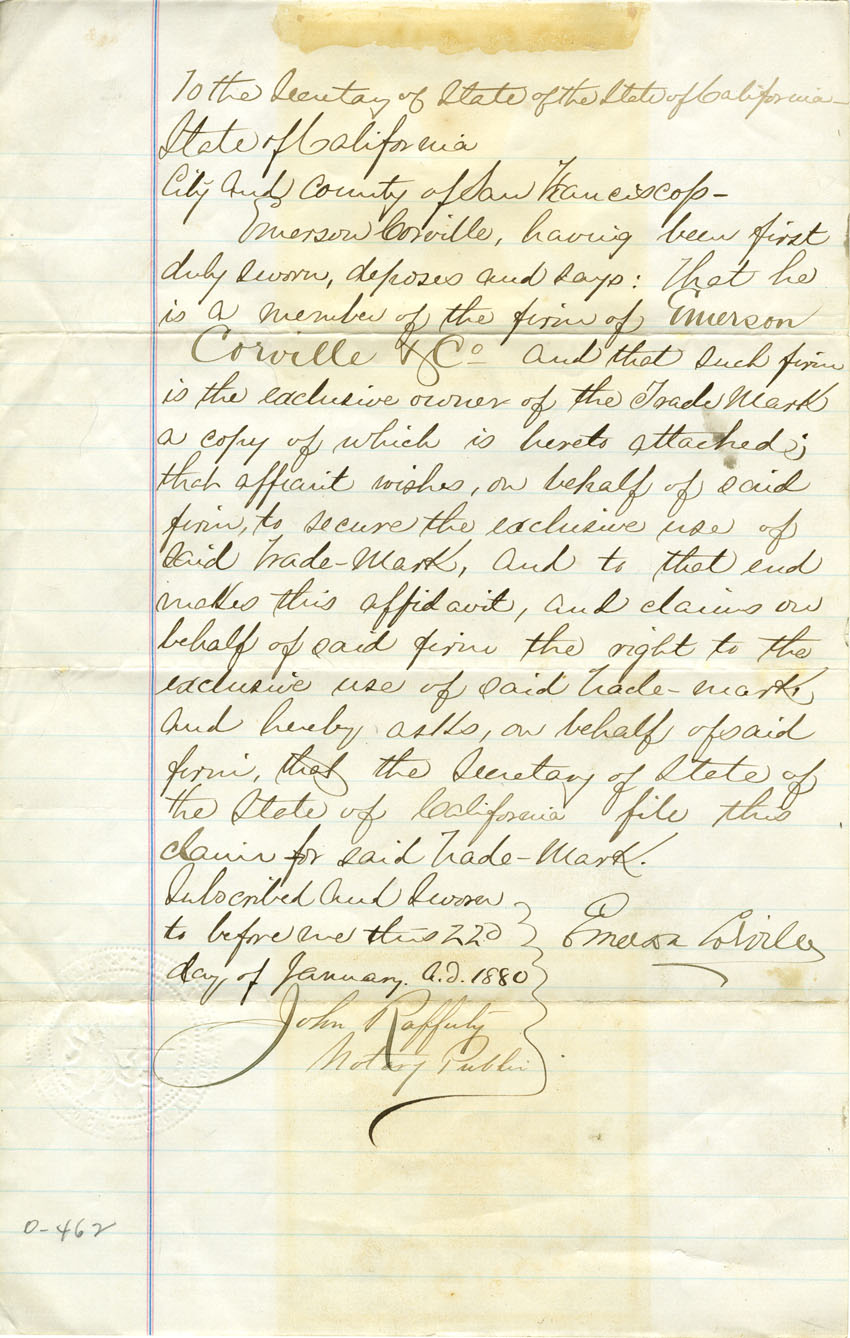 To the Secretary of State of the State of California—
State of California
City and County of San Francisco ss—
Emerson Corville, having been first
duly sworn, deposes and says: That he
is a member of the firm of Emerson
Corville & Co and that such firm
is the exclusive owner of the Trade Mark
a copy of which is hereto attached;
that affiant wishes, on behalf of said
firm, to secure the exclusive use of
said Trade-Mark, and to that end
makes this affidavit, and claims on
behalf of said firm the right to the
exclusive use of said trade-mark,
and hereby asks, on behalf of said
firm, that the Secretary of State of
the State of California file this
claim for said Trade-Mark.
Subscribed and Sworn
to before me this 22d
day of January. A.D. 1880
Emerson Corville
John Rafferty
Notary Public
0-462